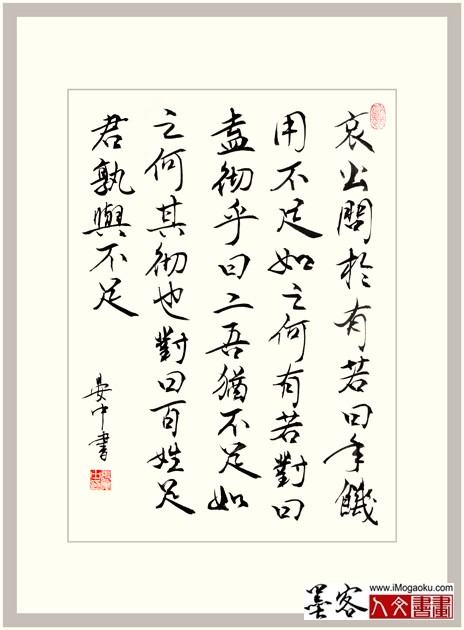 哀公問於有若曰年饑
用不足如之何有若對曰
盍彻乎曰二吾猶不足如
之何其彻也對曰百姓足
君孰與不足
晏中書
墨客
www.iMogaoku.com
人文書畫